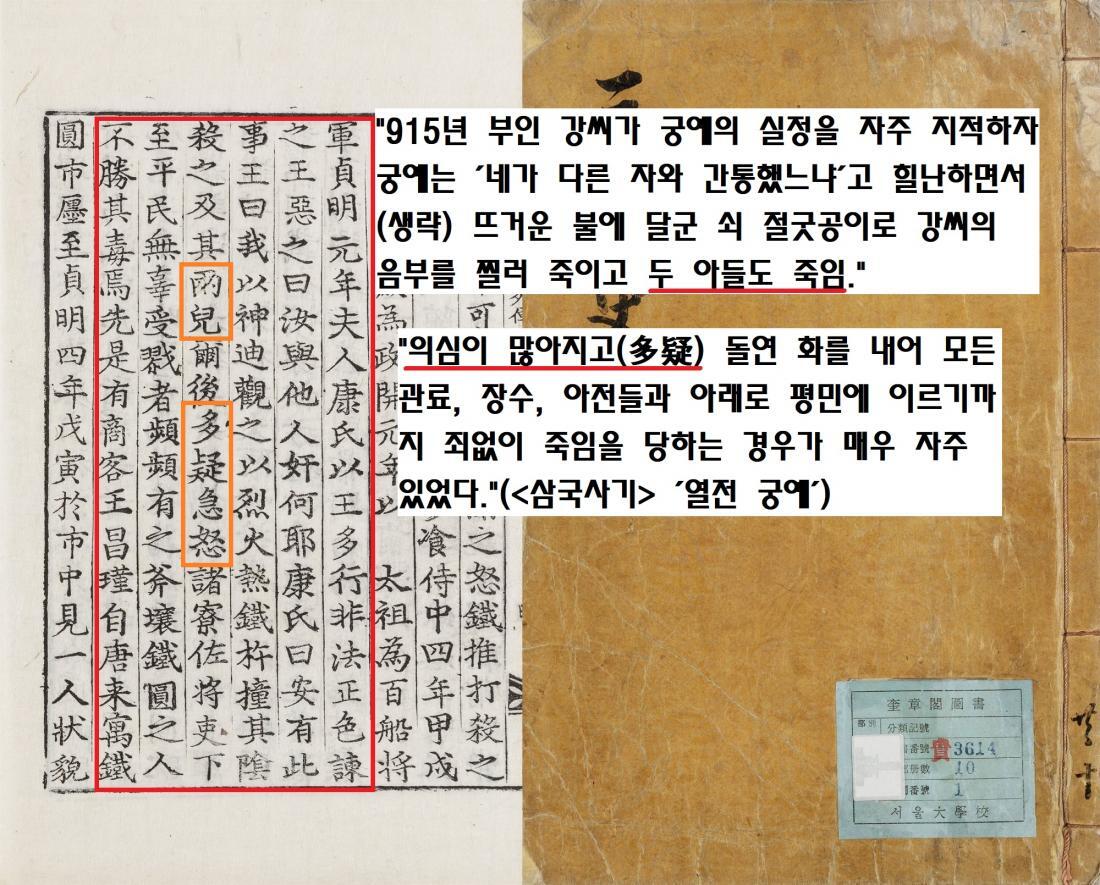 "915년 부인 강씨가 궁예의 실정을 자주 지적하자
궁예는 ´네가 다른 자와 간통했느냐´고 힐난하면서
(생략) 뜨거운 불에 달군 쇠 절굿공이로 강씨의
음부를 찔러 죽이고 두 아들도 죽임."
"의심이 많아지고(多疑) 돌연 화를 내어 모든
관료, 장수, 아전들과 아래로 평민에 이르기까
지 죄없이 죽임을 당하는 경우가 매우 자주
있었다."(<삼국사기> ´열전 궁예´)
可
之怒鐵推打殺之
飡侍中四年甲戌
為政開元年以 太祖為百船將
軍貞明元年夫人康氏以王多行非法正色諫
之王惡之曰汝與他人奸何耶康氏曰安有此
事王曰我以神迪觀之以烈火熱鐵杵撞其陰
殺之及其兩兒爾後多疑急怒諸寮佐將吏下
至平民無辜受戮者頻頻有之斧壤鐵圓之人
不勝其毒焉先是有商客王昌瑾自唐来寓鐵
圓市廛至貞明四年戊寅於市中見一人狀貌
奎章閣圖書
部別
分類記號
番號 貴3614
冊數 10
番號 1
서울大學校